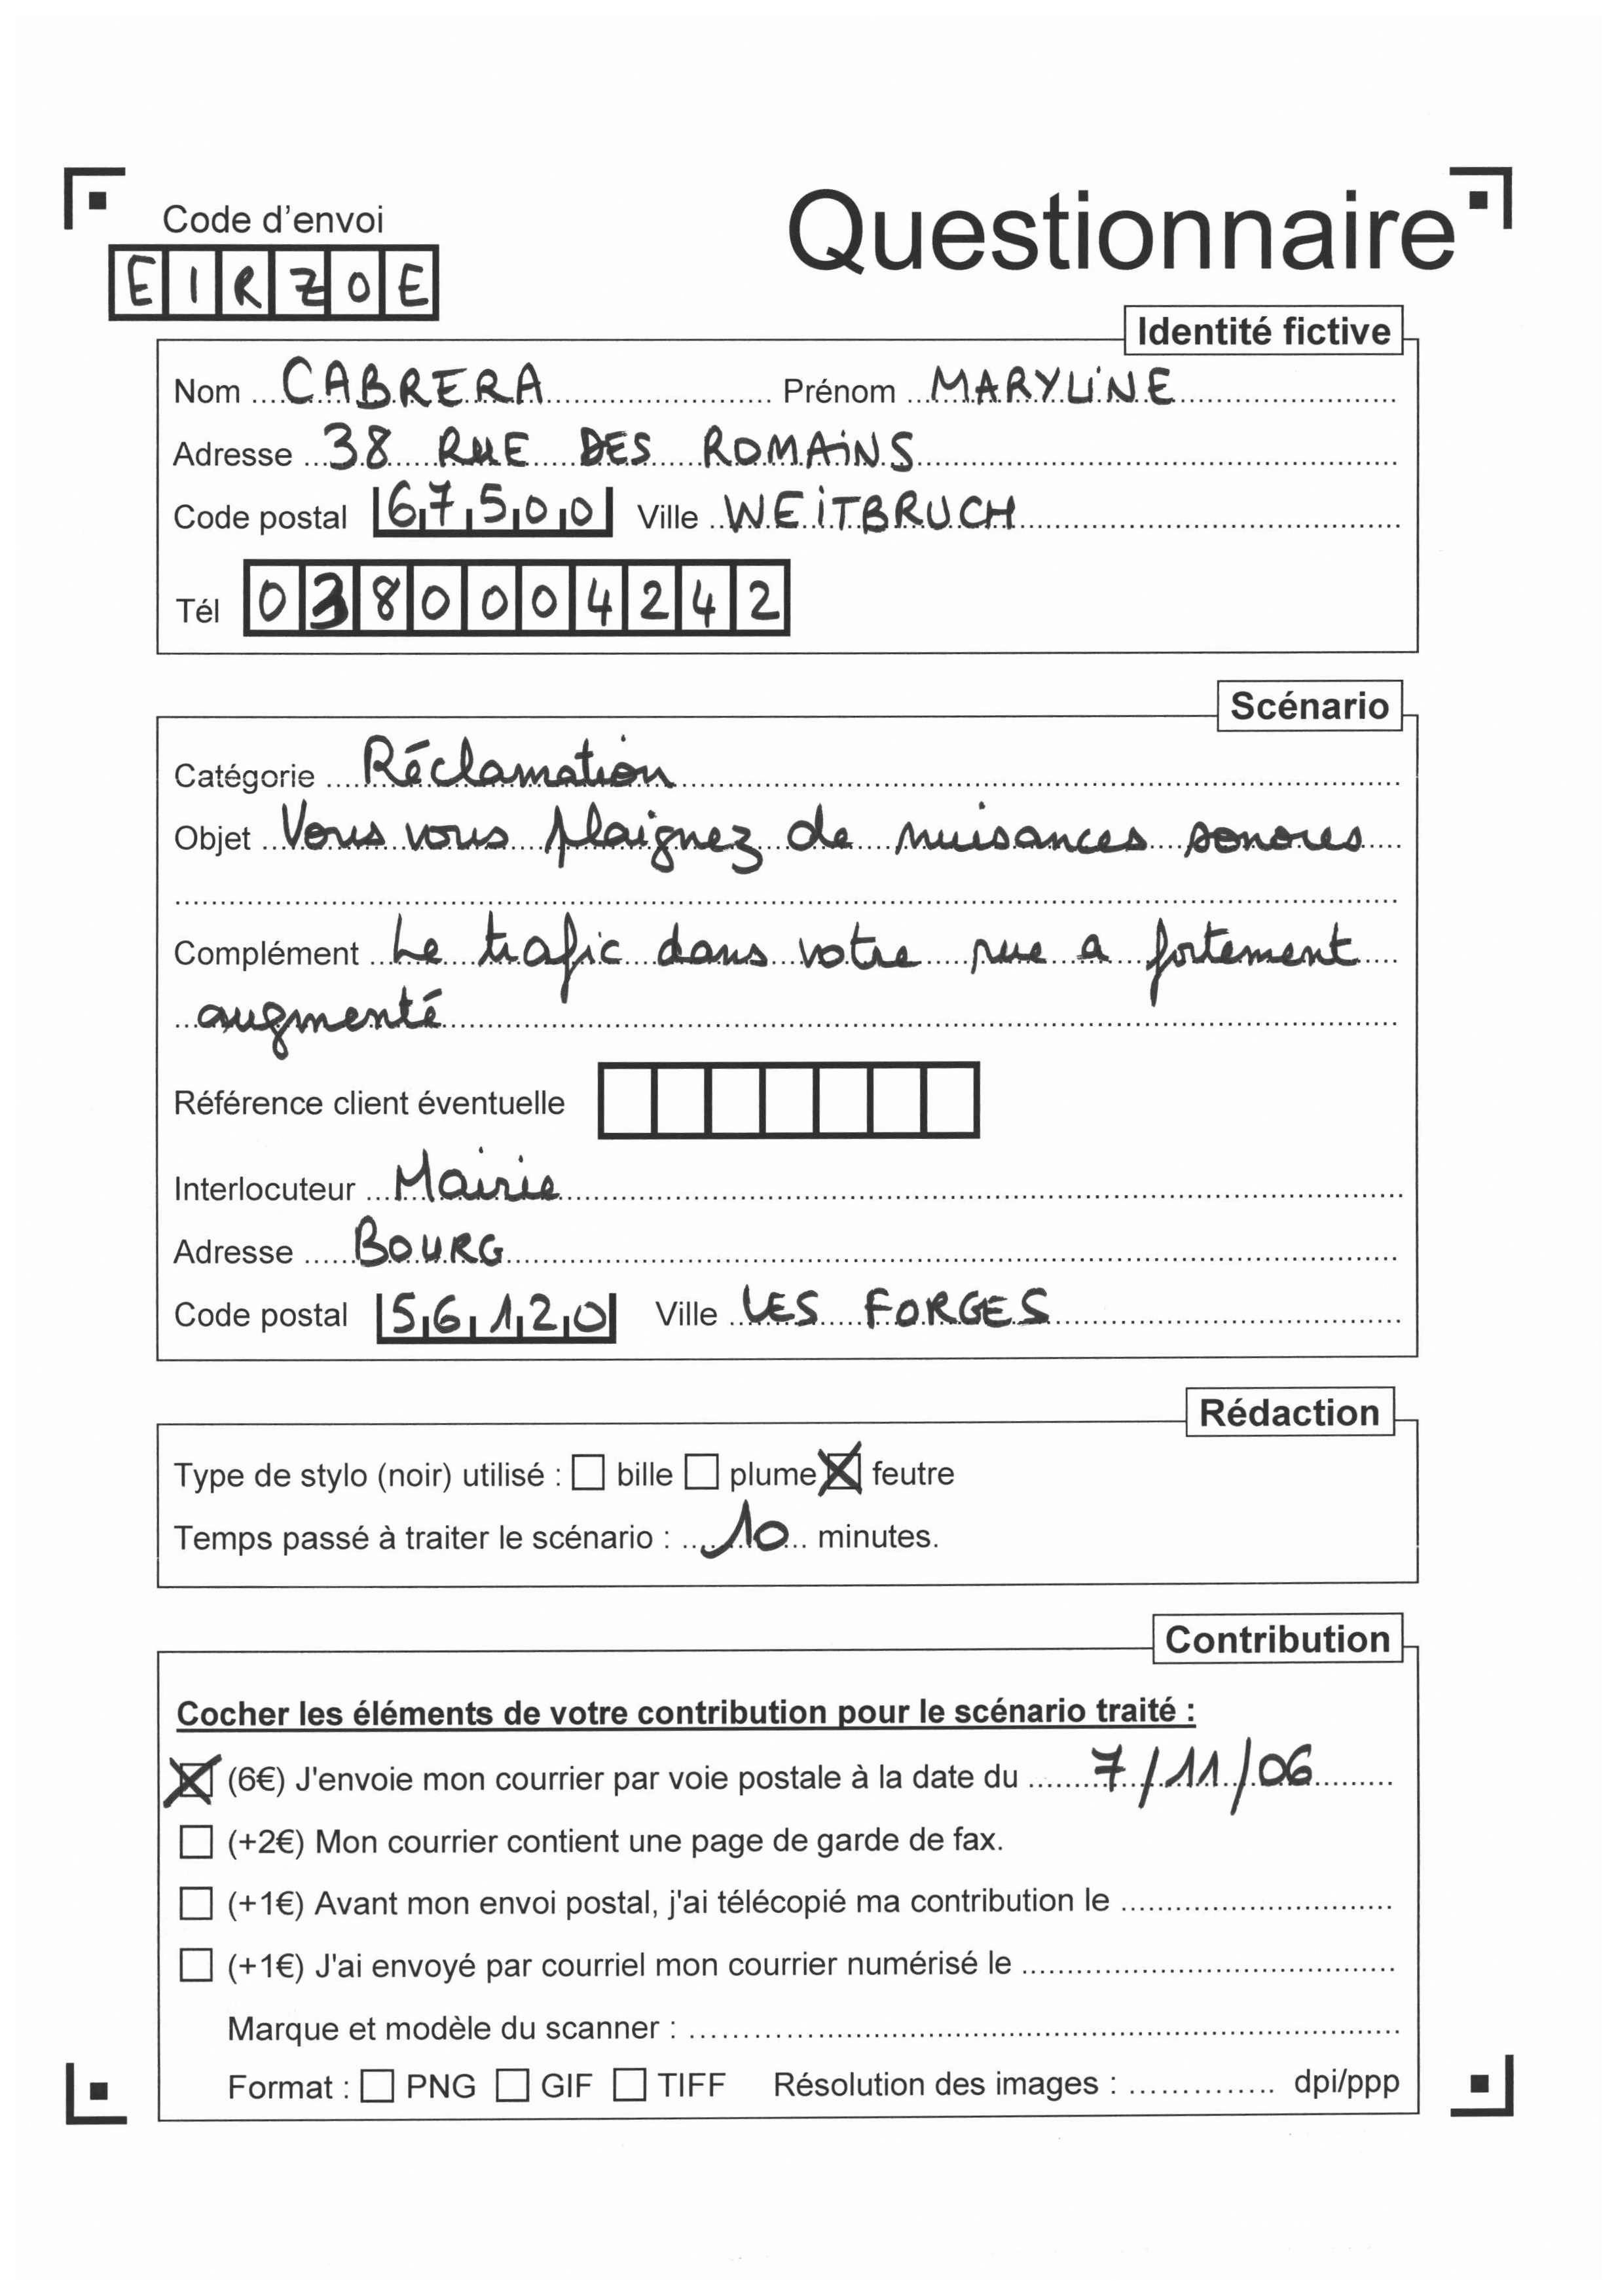 Code d'envoi
Questionnaire
EIRZOE
Identité fictive
Nom CABRERA Prénom MARYLINE
Adresse 38 RUE DES ROMAINS
Code postal 67500 Ville WEITBRUCH
Tél 0380004242
Scénario
Catégorie Réclamation
Objet Vous vous plaignez de nuisances sonores
Complément Le trafic dans votre rue a fortement
augmenté
Référence client éventuelle
Interlocuteur Mairie
Adresse BOURG
Code postal 56120 Ville LES FORGES
Rédaction
Type de stylo (noir) utilisé : bille plume feutre
Temps passé à traiter le scénario : 10 minutes.
Contribution
Cocher les éléments de votre contribution pour le scénario traité :
(6€) J'envoie mon courrier par voie postale à la date du 7/11/06
(+2€) Mon courrier contient une page de garde de fax.
(+1€) Avant mon envoi postal, j'ai télécopié ma contribution le
(+1€) J'ai envoyé par courriel mon courrier numérisé le
Marque et modèle du scanner :
Format : PNG GIF TIFF Résolution des images : dpi/ppp